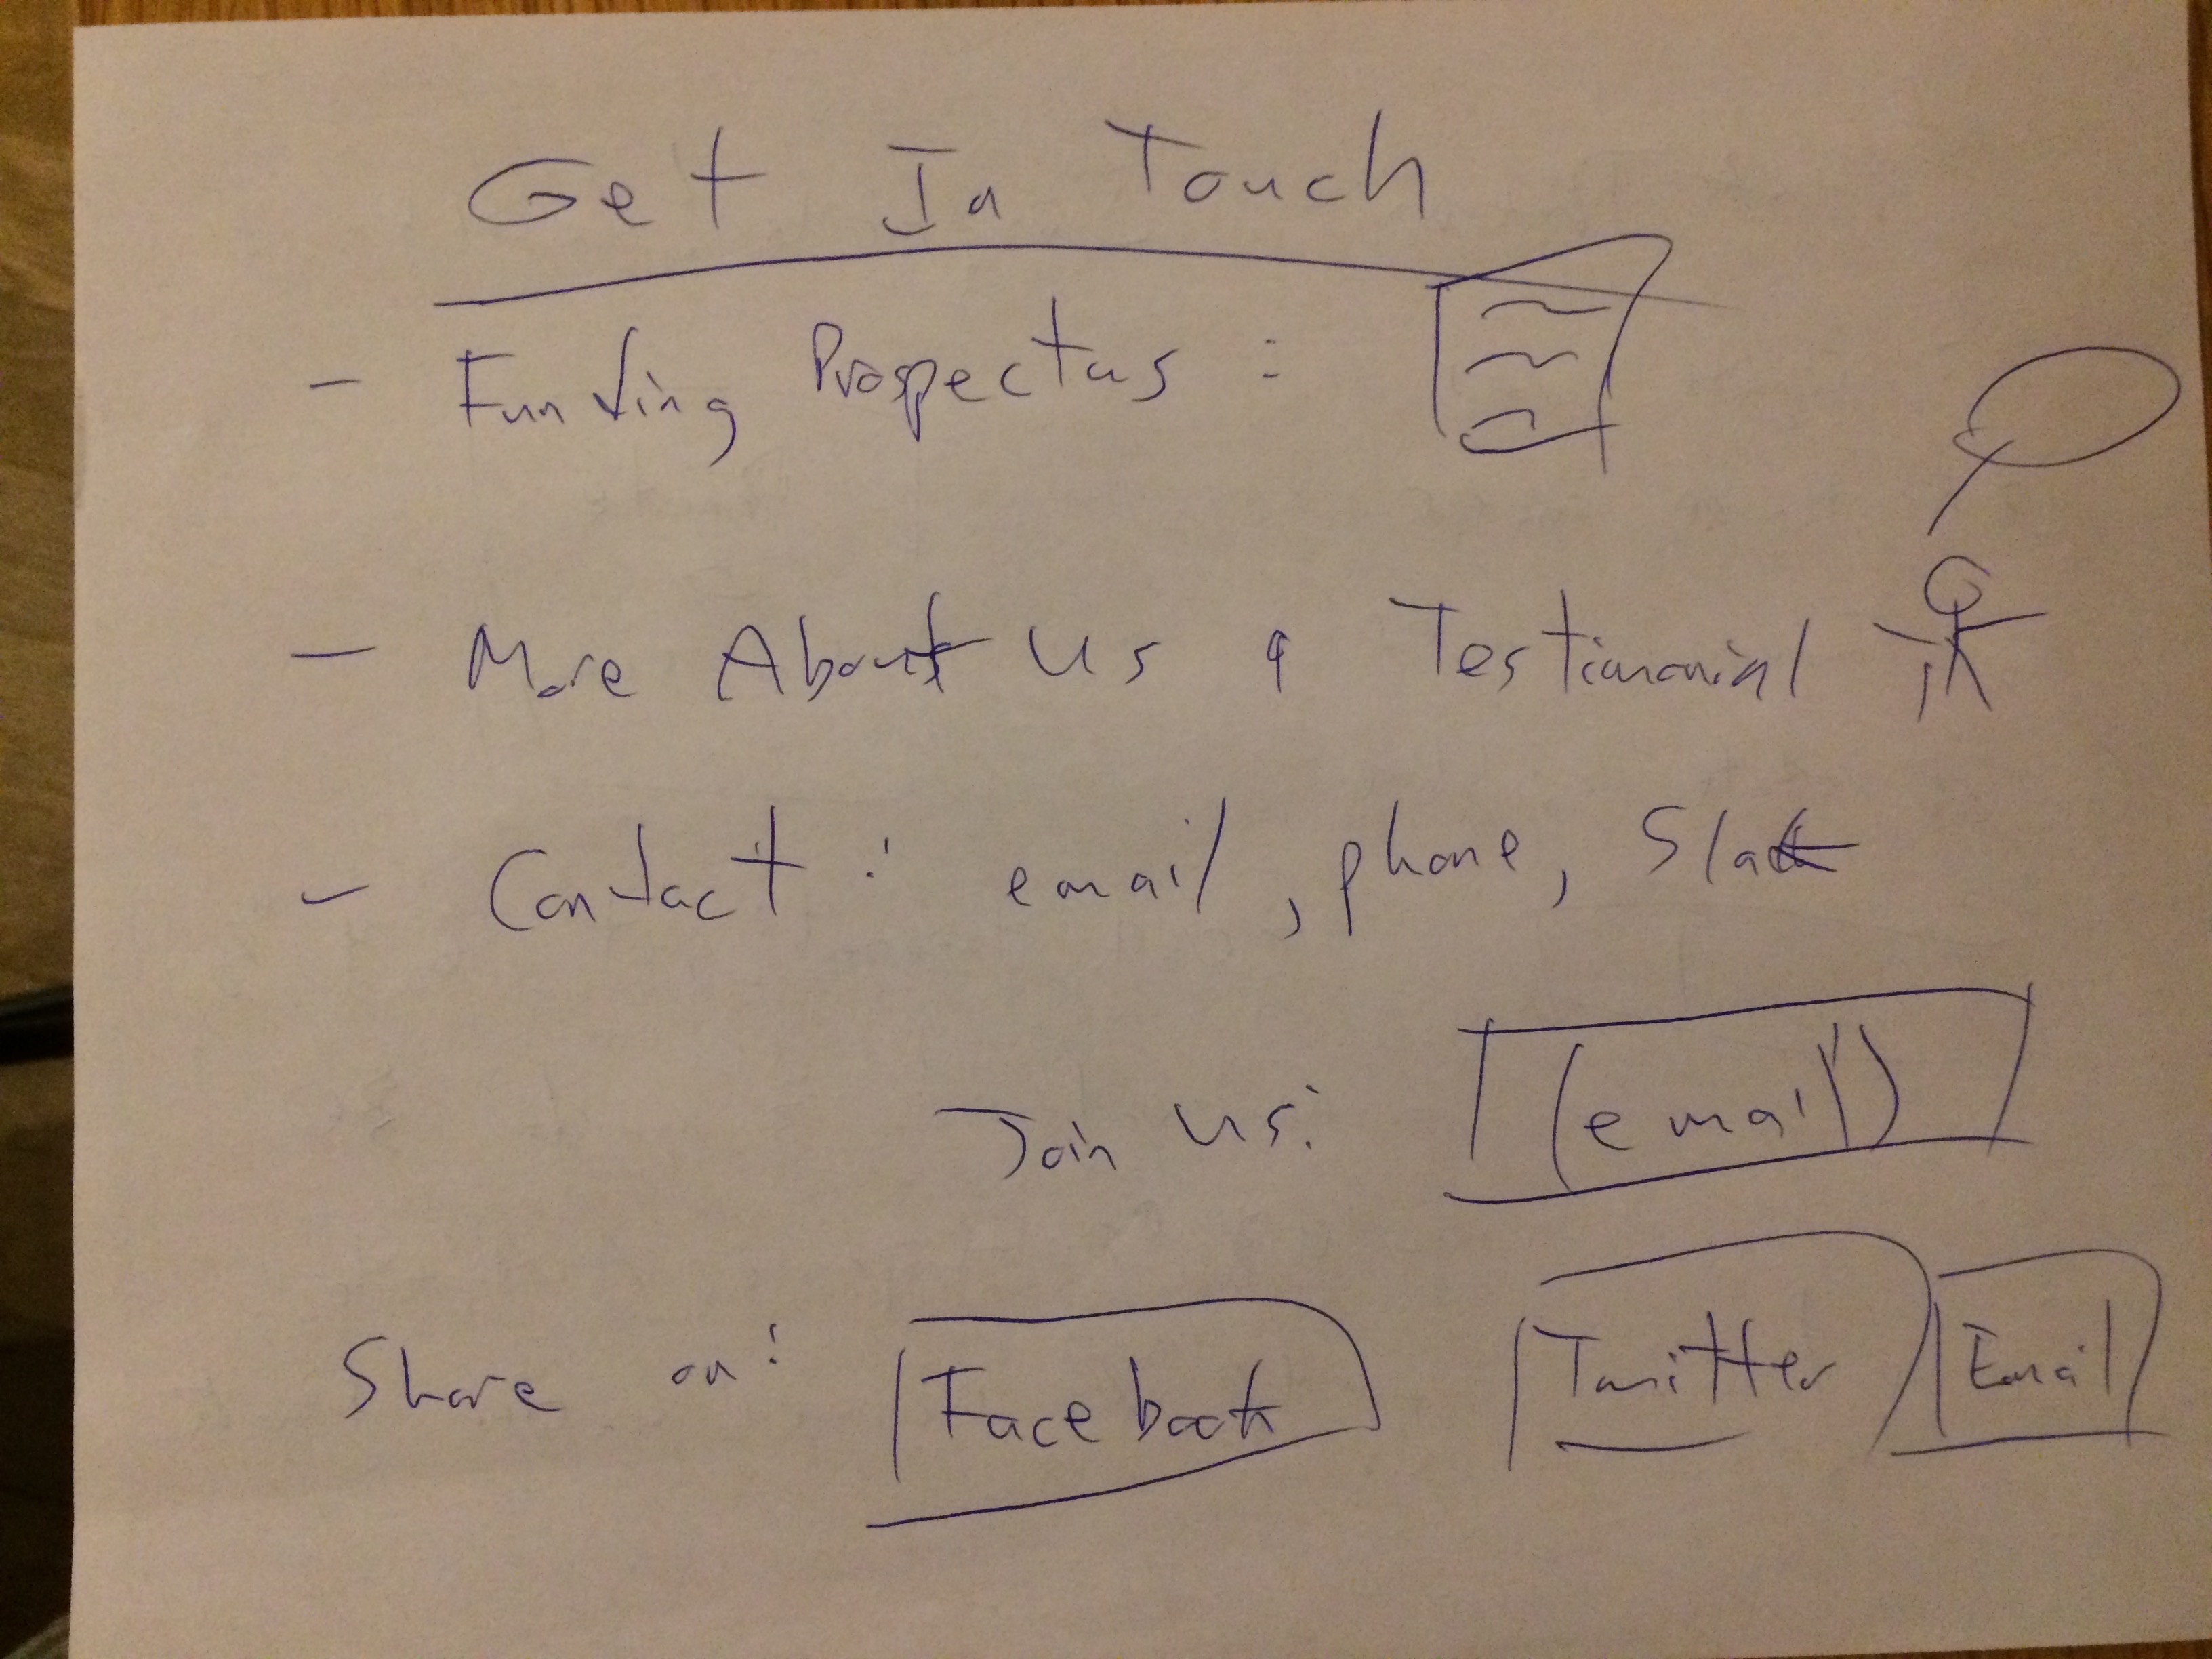 Get In Touch
- Funding Prospectus :
- More About Us & Testimonial
- Contact : email, phone, Slack
Join us: (email)
Share on: Facebook Twitter Email